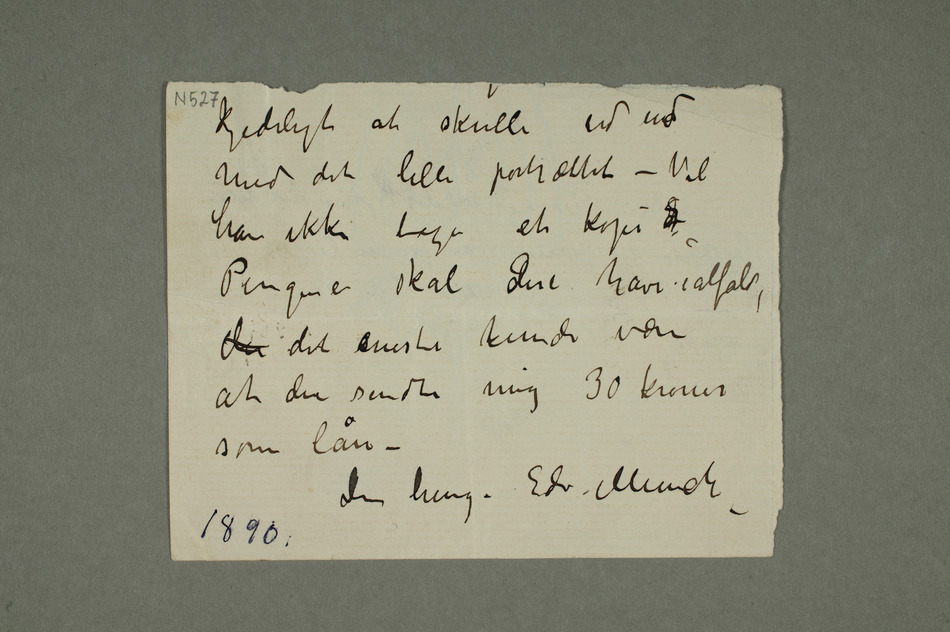 N527
Kjedeligt at skulle ud ud
med det lille portrættet – Vil
han ikke tage et kopi
Pengene skal du have ialfald,
du det eneste kunde være
at du sendte mig 30 kroner
som lån –
Din heng. Edv. Munch
1890.